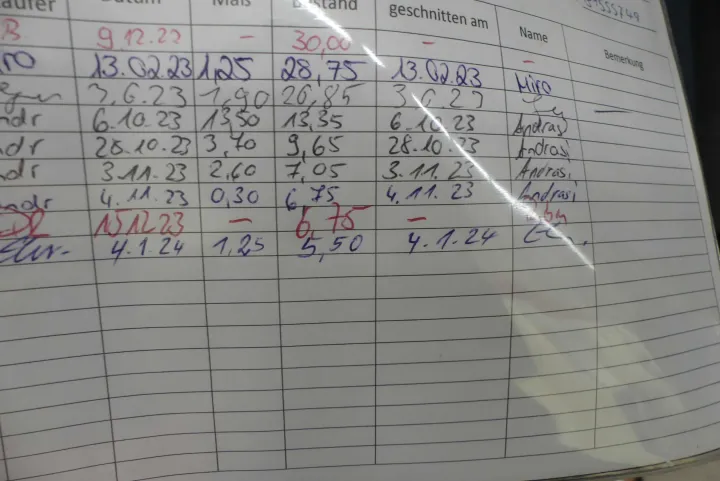 äufer Datum Maß Bestand geschnitten am Name Bemerkung
B 9.12.22 – 30,00 – –
ro 13.02.23 1,25 28,75 13.02.23 Miro
3.6.23 1,90 26,85 3.6.23 —
ndr 6.10.23 13,50 13,35 6.10.23 Andrasi
ndr 28.10.23 3,70 9,65 28.10.23 Andrasi
ndr 3.11.23 2,60 7,05 3.11.23 Andrasi
ndr 4.11.23 0,30 6,75 4.11.23 Andrasi
15.12.23 – 6,75 –
4.1.24 1,25 5,50 4.1.24